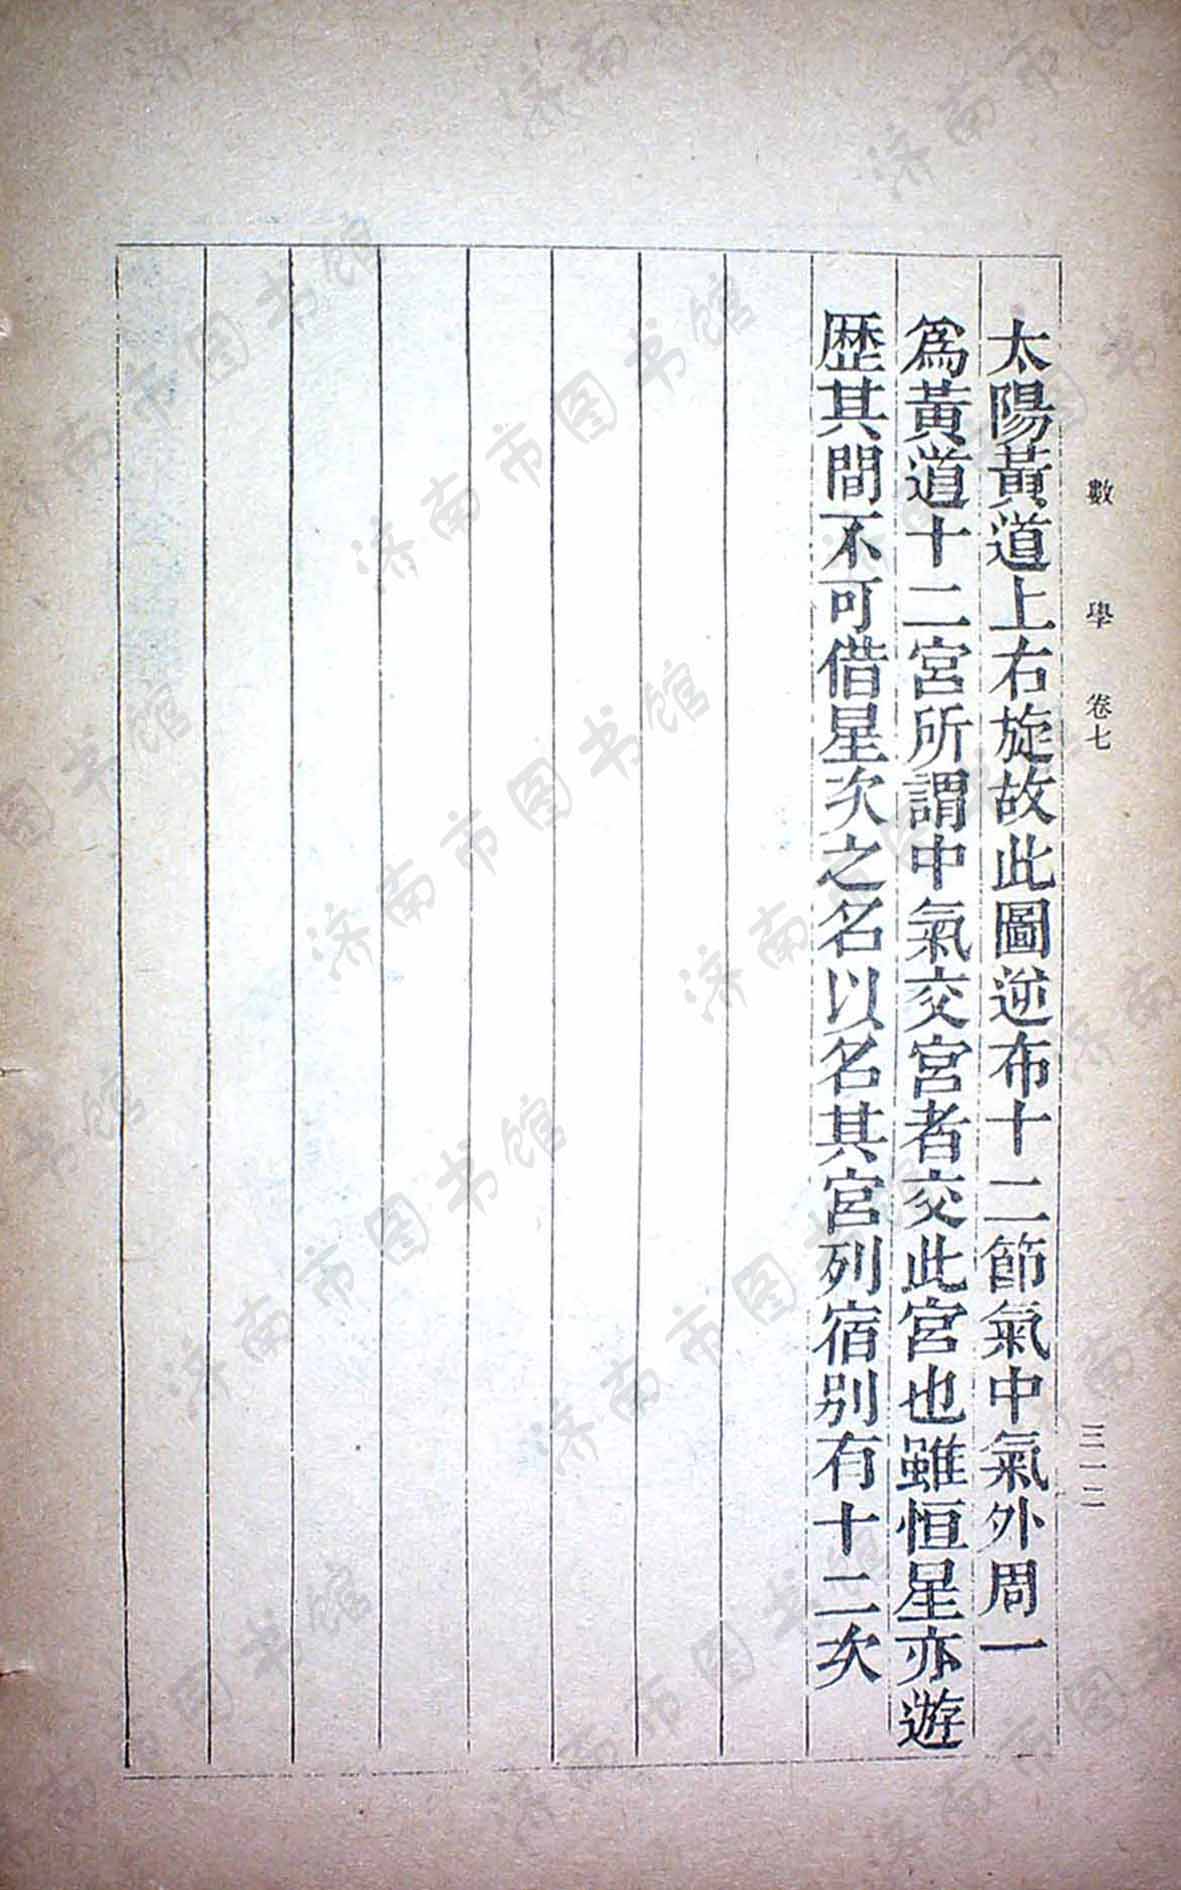 數學 卷七 三一二
太陽黃道上右旋故此圖逆布十二節氣中氣外周一
爲黃道十二宮所謂中氣交宮者交此宮也雖恒星亦遊
歷其間不可借星次之名以名其宮列宿別有十二次
济南市图书馆